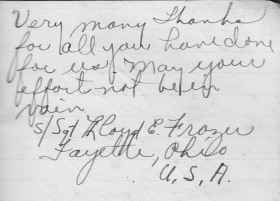 Very many Thanks
for all you have done
for us. May your
effort not be in
vain
S/Sgt Lloyd E. Frazer
Fayette, Ohio
U.S.A.